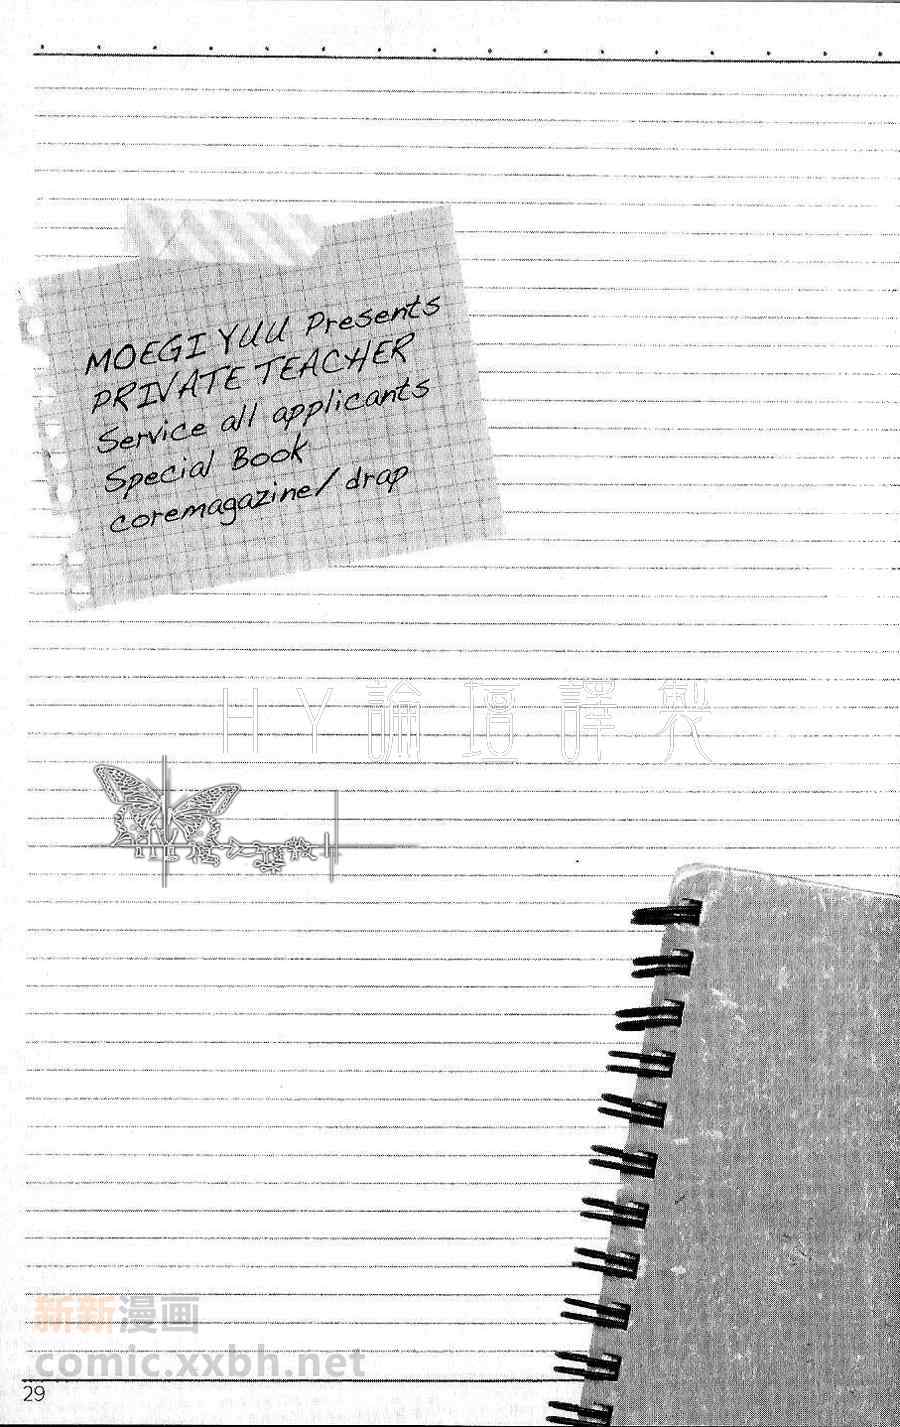 MOEGI YUU Presents
PRIVATE TEACHER
Service all applicants
Special Book
coremagazine/ drap
HY論壇譯製
新新漫画
comic.xxbh.net
29